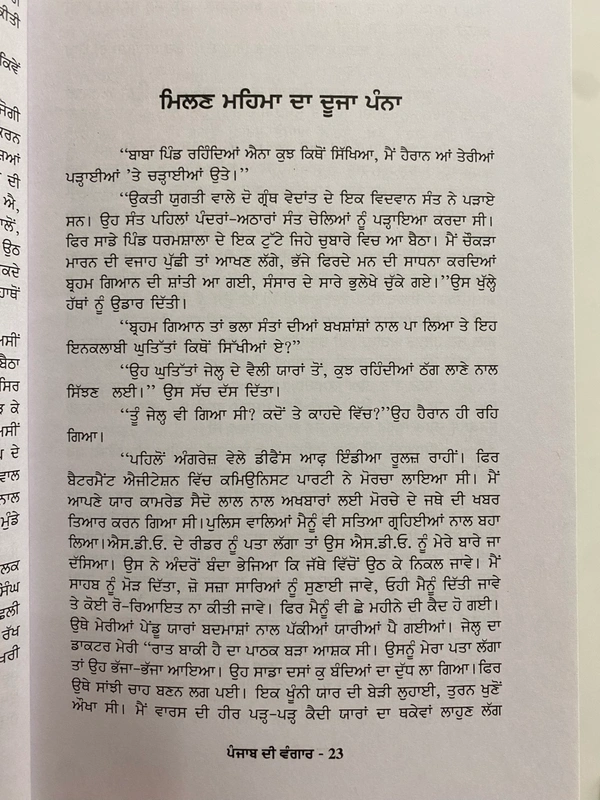 ਮਿਲਣ ਮਹਿਮਾ ਦਾ ਦੂਜਾ ਪੰਨਾ
“ਬਾਬਾ ਪਿੰਡ ਰਹਿੰਦਿਆਂ ਐਨਾ ਕੁਝ ਕਿਥੋਂ ਸਿੱਖਿਆ, ਮੈਂ ਹੈਰਾਨ ਆਂ ਤੇਰੀਆਂ
ਪੜ੍ਹਾਈਆਂ ’ਤੇ ਚੜ੍ਹਾਈਆਂ ਉਤੇ।”
“ਉਕਤੀ ਯੁਗਤੀ ਵਾਲੇ ਦੋ ਗ੍ਰੰਥ ਵੇਦਾਂਤ ਦੇ ਇਕ ਵਿਦਵਾਨ ਸੰਤ ਨੇ ਪੜਾਏ
ਸਨ। ਉਹ ਸੰਤ ਪਹਿਲਾਂ ਪੰਦਰਾਂ-ਅਠਾਰਾਂ ਸੰਤ ਚੇਲਿਆਂ ਨੂੰ ਪੜ੍ਹਾਇਆ ਕਰਦਾ ਸੀ।
ਫਿਰ ਸਾਡੇ ਪਿੰਡ ਧਰਮਸ਼ਾਲਾ ਦੇ ਇਕ ਟੁੱਟੇ ਜਿਹੇ ਚੁਬਾਰੇ ਵਿਚ ਆ ਬੈਠਾ। ਮੈਂ ਚੌਂਕੜਾ
ਮਾਰਨ ਦੀ ਵਜਾਹ ਪੁੱਛੀ ਤਾਂ ਆਖਣ ਲੱਗੇ, ਭੱਜੇ ਫਿਰਦੇ ਮਨ ਦੀ ਸਾਧਨਾ ਕਰਦਿਆਂ
ਬ੍ਰਹਮ ਗਿਆਨ ਦੀ ਸ਼ਾਂਤੀ ਆ ਗਈ, ਸੰਸਾਰ ਦੇ ਸਾਰੇ ਭੁਲੇਖੇ ਚੁੱਕੇ ਗਏ।”ਉਸ ਖੁੱਲ੍ਹੇ
ਹੱਥਾਂ ਨੂੰ ਉਡਾਰ ਦਿੱਤੀ।
“ਬ੍ਰਹਮ ਗਿਆਨ ਤਾਂ ਭਲਾ ਸੰਤਾਂ ਦੀਆਂ ਬਖਸ਼ਾਂਸ਼ਾਂ ਨਾਲ ਪਾ ਲਿਆ ਤੇ ਇਹ
ਇਨਕਲਾਬੀ ਘੁਤਿੱਤਾਂ ਕਿਥੋਂ ਸਿੱਖੀਆਂ ਏ?”
“ਉਹ ਘੁਤਿੱਤਾਂ ਜੇਲ੍ਹ ਦੇ ਵੈਲੀ ਯਾਰਾਂ ਤੋਂ, ਕੁਝ ਰਹਿੰਦੀਆਂ ਠੱਗ ਲਾਣੇ ਨਾਲ
ਸਿੱਝਣ ਲਈ।” ਉਸ ਸੱਚ ਦੱਸ ਦਿੱਤਾ।
“ਤੂੰ ਜੇਲ੍ਹ ਵੀ ਗਿਆ ਸੀ? ਕਦੋਂ ਤੇ ਕਾਹਦੇ ਵਿੱਚ?”ਉਹ ਹੈਰਾਨ ਹੀ ਰਹਿ
ਗਿਆ।
“ਪਹਿਲੋਂ ਅੰਗਰੇਜ਼ ਵੇਲੇ ਡੀਫੈਂਸ ਆਫ਼ ਇੰਡੀਆ ਰੂਲਜ਼ ਰਾਹੀਂ। ਫਿਰ
ਬੈਟਰਮੈਂਟ ਐਜੀਟੇਸ਼ਨ ਵਿੱਚ ਕਮਿਊਨਿਸਟ ਪਾਰਟੀ ਨੇ ਮੋਰਚਾ ਲਾਇਆ ਸੀ। ਮੈਂ
ਆਪਣੇ ਯਾਰ ਕਾਮਰੇਡ ਸੈਦੋ ਲਾਲ ਨਾਲ ਅਖਬਾਰਾਂ ਲਈ ਮੋਰਚੇ ਦੇ ਜਥੇ ਦੀ ਖਬਰ
ਤਿਆਰ ਕਰਨ ਗਿਆ ਸੀ।ਪੁਲਿਸ ਵਾਲਿਆਂ ਮੈਨੂੰ ਵੀ ਸਤਿਆ ਗ੍ਰਹਿਈਆਂ ਨਾਲ ਬਹਾ
ਲਿਆ।ਐਸ.ਡੀ.ਓ. ਦੇ ਰੀਡਰ ਨੂੰ ਪਤਾ ਲੱਗਾ ਤਾਂ ਉਸ ਐਸ.ਡੀ.ਓ. ਨੂੰ ਮੇਰੇ ਬਾਰੇ ਜਾ
ਦੱਸਿਆ। ਉਸ ਨੇ ਅੰਦਰੋਂ ਬੰਦਾ ਭੇਜਿਆ ਕਿ ਜੱਥੇ ਵਿੱਚੋਂ ਉਠ ਕੇ ਨਿਕਲ ਜਾਵੇ। ਮੈਂ
ਸਾਹਬ ਨੂੰ ਮੋੜ ਦਿੱਤਾ, ਜ਼ੋ ਸਜ਼ਾ ਸਾਰਿਆਂ ਨੂੰ ਸੁਣਾਈ ਜਾਵੇ, ਓਹੀ ਮੈਨੂੰ ਦਿੱਤੀ ਜਾਵੇ
ਤੇ ਕੋਈ ਰੋ-ਰਿਆਇਤ ਨਾ ਕੀਤੀ ਜਾਵੇ। ਫਿਰ ਮੈਨੂੰ ਵੀ ਛੇ ਮਹੀਨੇ ਦੀ ਕੈਦ ਹੋ ਗਈ।
ਉਥੇ ਮੇਰੀਆਂ ਪੇਂਡੂ ਯਾਰਾਂ ਬਦਮਾਸ਼ਾਂ ਨਾਲ ਪੱਕੀਆਂ ਯਾਰੀਆਂ ਪੈ ਗਈਆਂ। ਜੇਲ੍ਹ ਦਾ
ਡਾਕਟਰ ਮੇਰੀ “ਰਾਤ ਬਾਕੀ ਹੈ ਦਾ ਪਾਠਕ ਬੜਾ ਆਸ਼ਕ ਸੀ। ਉਸਨੂੰ ਮੇਰਾ ਪਤਾ ਲੱਗਾ
ਤਾਂ ਉਹ ਭੱਜਾ-ਭੱਜਾ ਆਇਆ। ਉਹ ਸਾਡਾ ਦਸਾਂ ਕੁ ਬੰਦਿਆਂ ਦਾ ਦੁੱਧ ਲਾ ਗਿਆ।ਫਿਰ
ਉਥੇ ਸਾਂਝੀ ਚਾਹ ਬਣਨ ਲਗ ਪਈ। ਇਕ ਖੂੰਨੀ ਯਾਰ ਦੀ ਬੇੜੀ ਲੁਹਾਈ, ਤੁਰਨ ਖੁਣੋਂ
ਔਖਾ ਸੀ। ਮੈਂ ਵਾਰਸ ਦੀ ਹੀਰ ਪੜ੍ਹ-ਪੜ੍ਹ ਕੈਦੀ ਯਾਰਾਂ ਦਾ ਥਕੇਵਾਂ ਲਾਹੁਣ ਲੱਗ
ਪੰਜਾਬ ਦੀ ਵੰਗਾਰ - 23